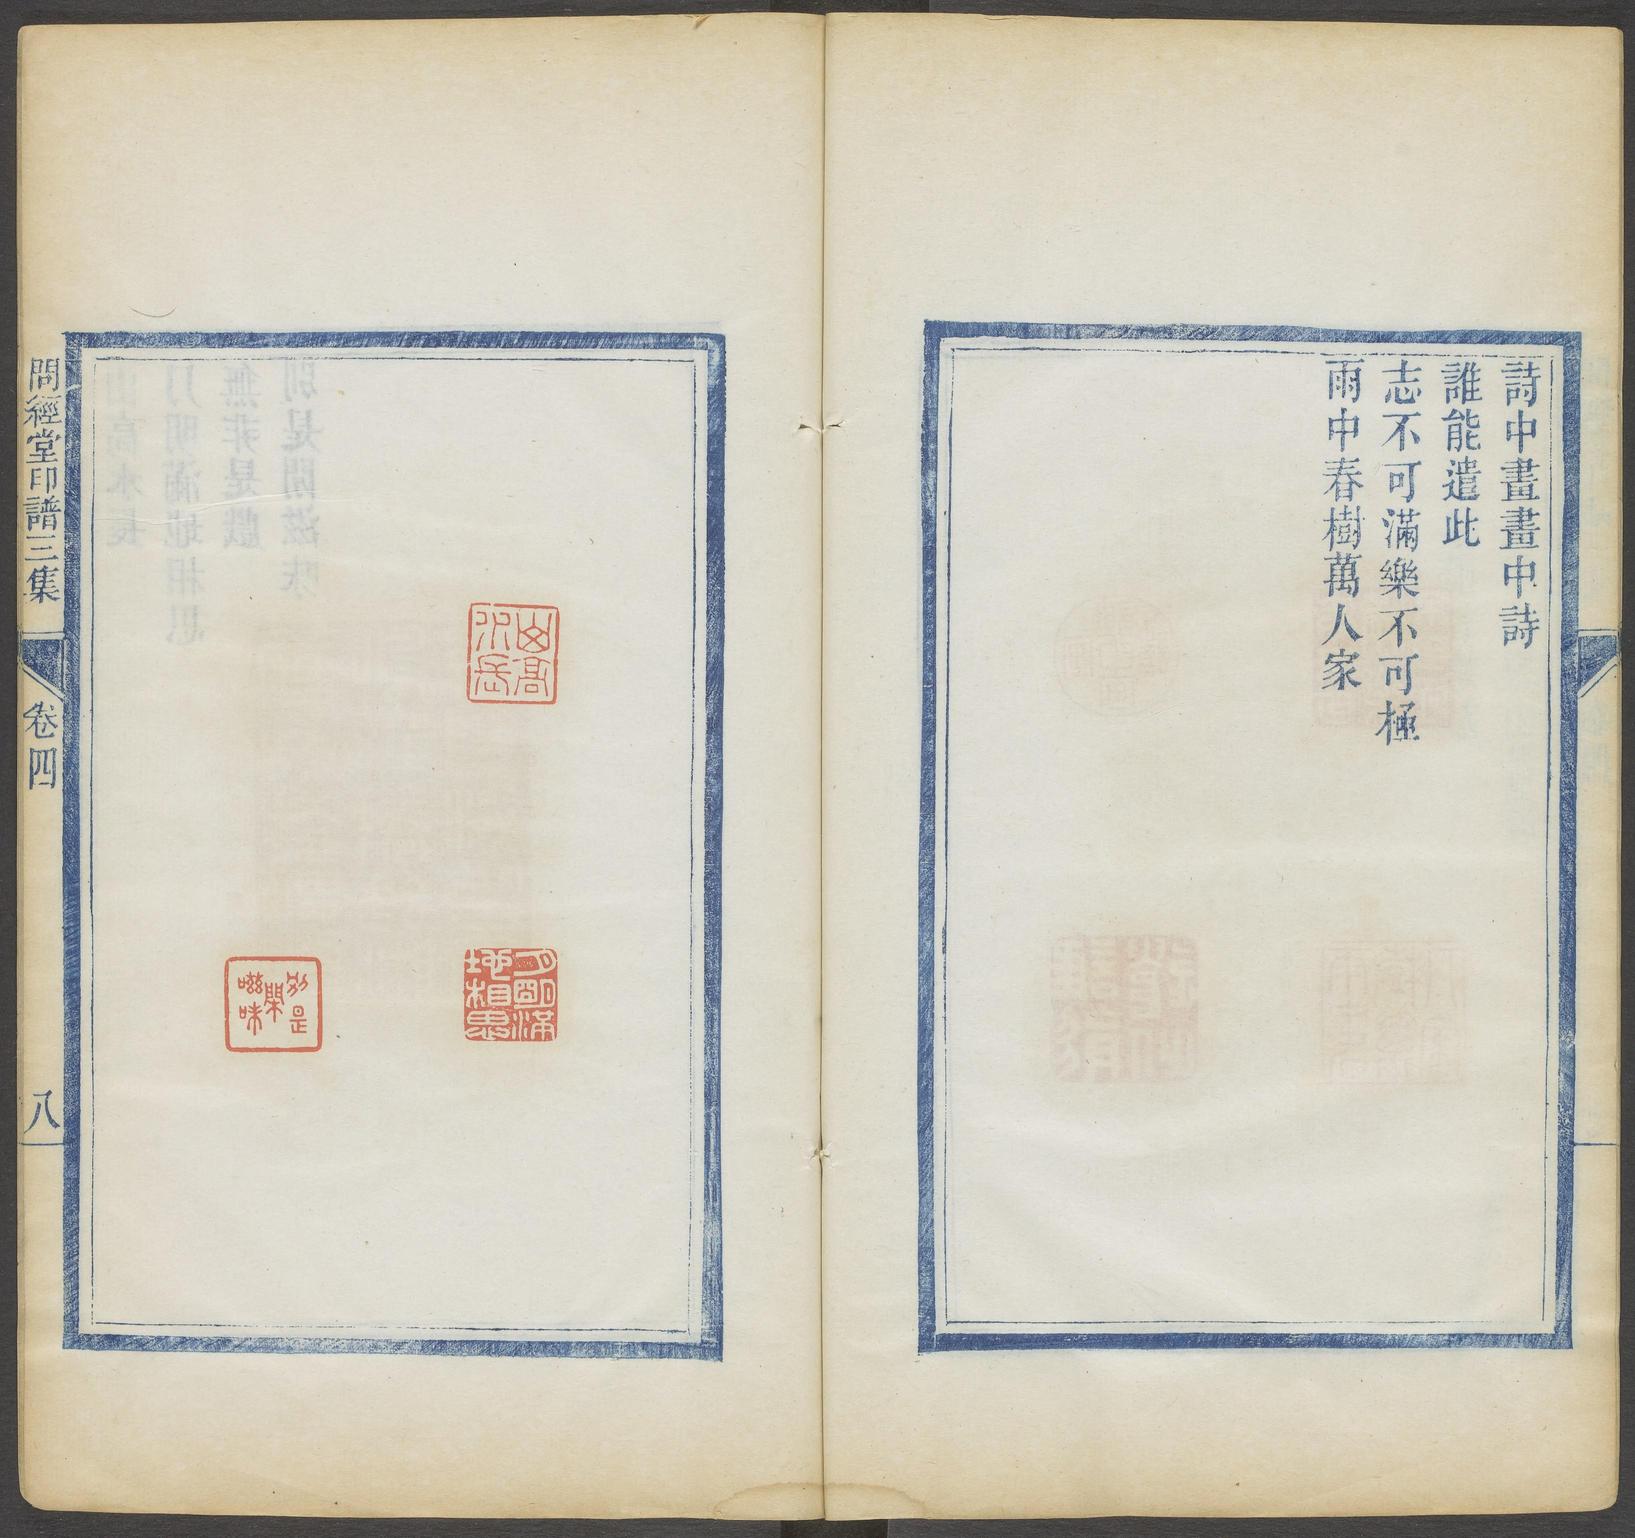 詩中畫畫中詩
誰能遣此
志不可滿樂不可極
雨中春樹萬人家
山高水長
月明滿地相思
別是閑滋味
問經堂印譜三集
卷四
八